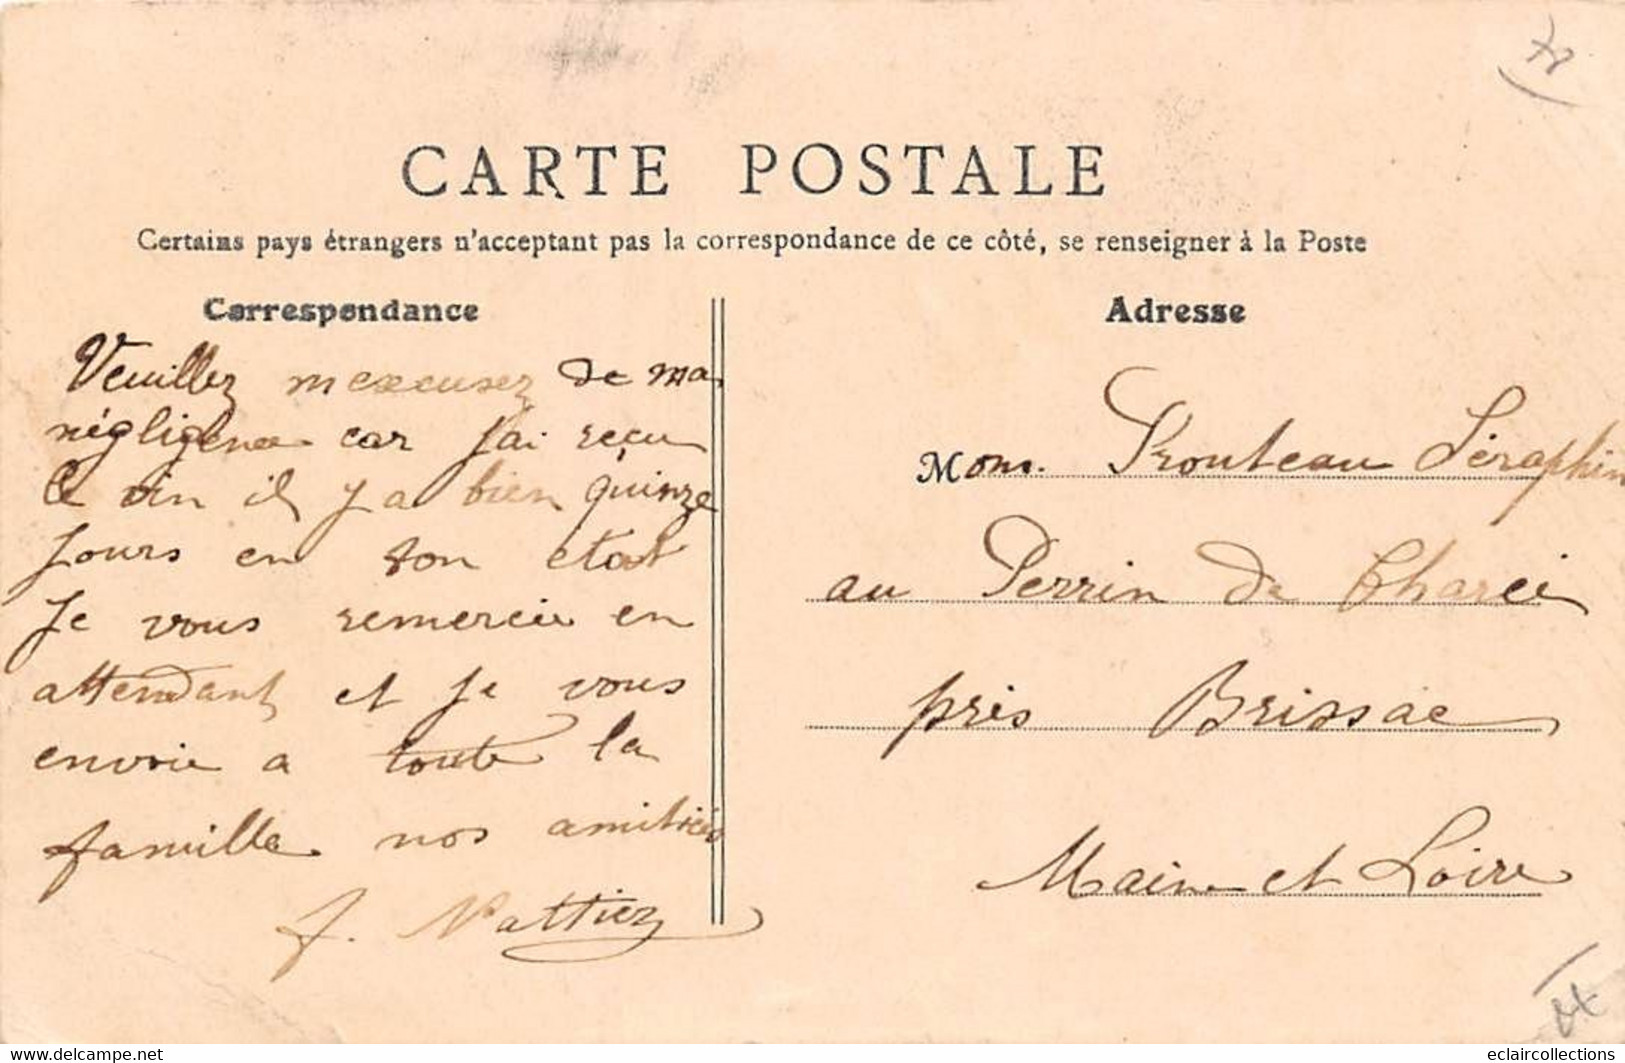 CARTE POSTALE
Certains pays étrangers n'acceptent pas la correspondance de ce côté, se renseigner à la Poste
Correspondance
Veuillez mexcusez de ma
négligence car j'ai reçu
le vin il y a bien quinze
jours en bon état
Je vous remercie en
attendant et je vous
envoie a toute la
famille nos amitiés
J. Nattiez
Adresse
Mons. Prouteau Séraphin
au Perrin de
près Brissac
Main et Loire
eclaircollections